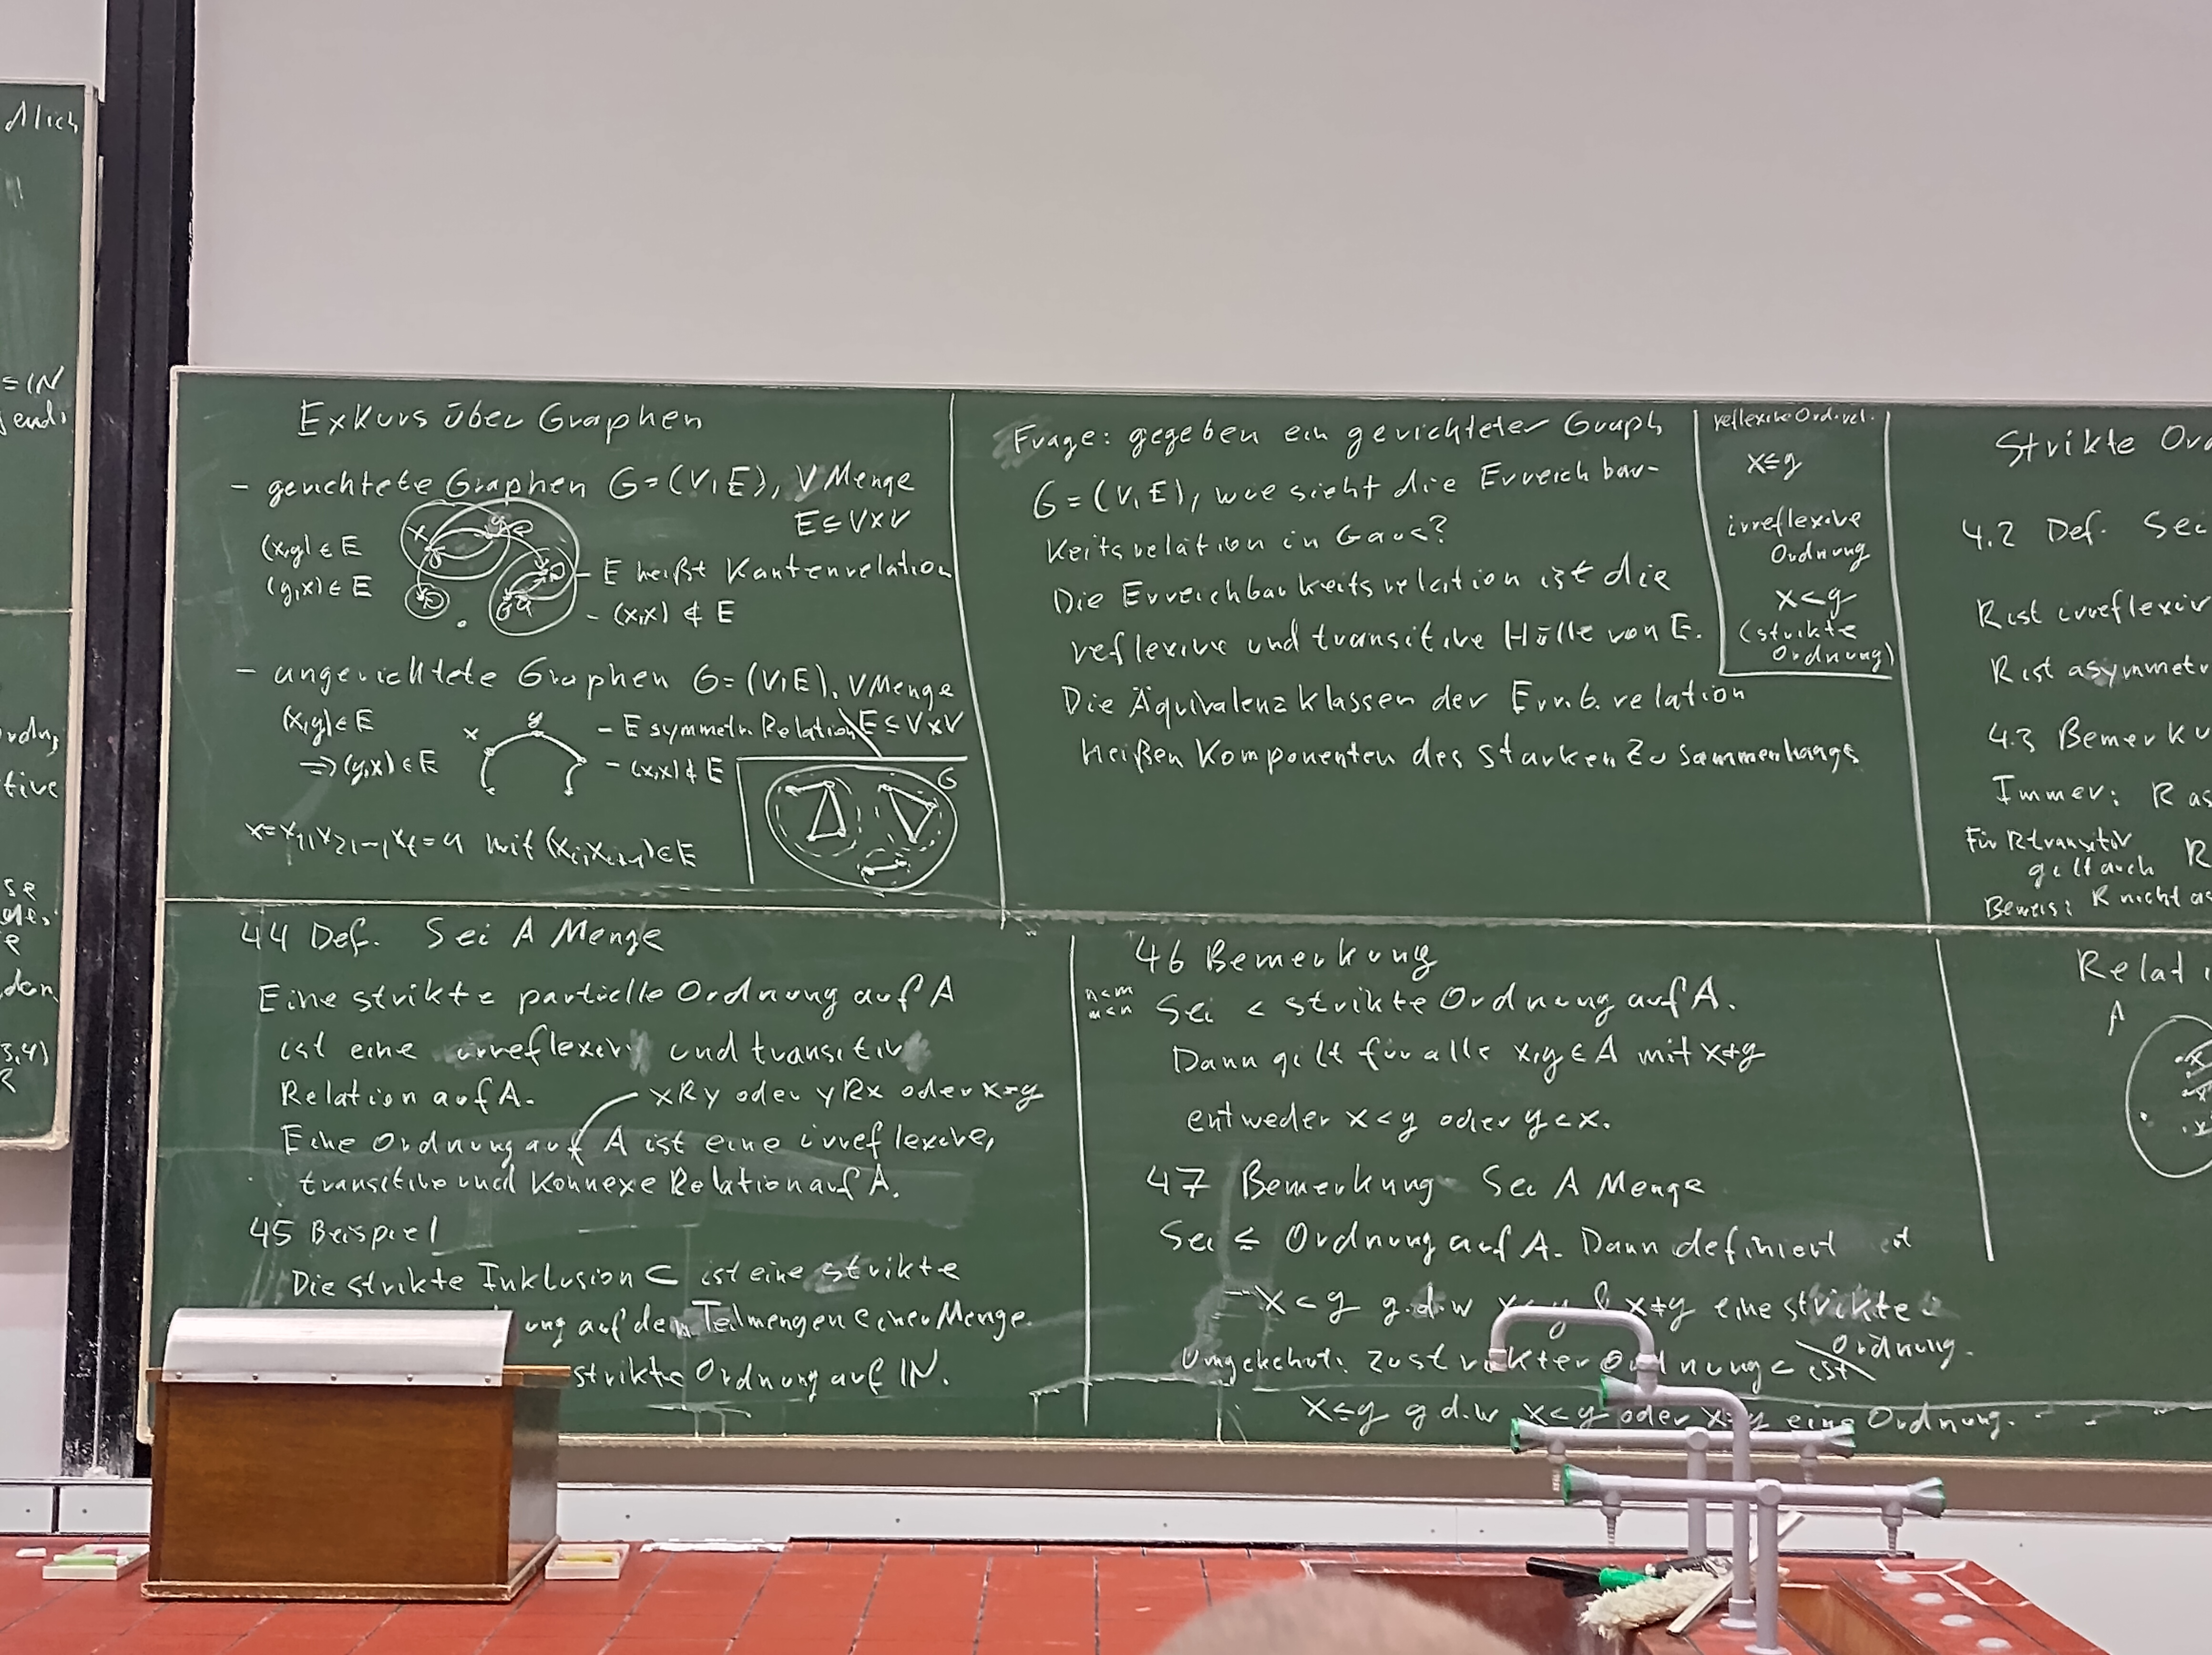 Exkurs über Graphen
- gerichtete Graphen G=(V,E), V Menge
E⊆V×V
(x,y)∈E
(y,x)∈E
x y
- E heißt Kantenrelation
- (x,x)∉E
- ungerichtete Graphen G=(V,E), V Menge
(x,y)∈E
⇒(y,x)∈E
x y
- E symmetr. Relation E⊆V×V
- (x,x)∉E
G
mit (xᵢ,xᵢ₊₁)∈E
Frage: gegeben ein gerichteter Graph
G=(V,E), wie sieht die Erreichbar-
keitsrelation in G aus?
Die Erreichbarkeitsrelation ist die
reflexive und transitive Hülle von E.
Die Äquivalenzklassen der Err.b. relation
heißen Komponenten des starken Zusammenhangs
reflexive Ord.rel.
x≤y
irreflexive
Ordnung
x<y
(strikte
Ordnung)
Strikte
4.2 Def. Sei
R ist
R ist
4.3
Immer: R
Für R transitiv
gilt auch R
Beweis: R nicht
44 Def. Sei A Menge
Eine strikte partielle Ordnung auf A
ist eine irreflexiv und transitiv
Relation auf A.
xRy oder yRx oder x=y
Eine Ordnung auf A ist eine irreflexive,
transitive und konnexe Relation auf A.
45 Beispiel
Die strikte Inklusion ⊂ ist eine strikte
auf den Teilmengen einer Menge.
strikte Ordnung auf ℕ.
46 Bemerkung
n<m
m<n
Sei < strikte Ordnung auf A.
Dann gilt für alle x,y∈A mit x≠y
entweder x<y oder y<x.
47 Bemerkung Sei A Menge
Sei ≤ Ordnung auf A. Dann definiert
x<y g.d.w x≠y eine strikte
Ordnung.
Umgekehrt: zu strikter Ordnung < ist
x≤y g.d.w x<y oder x=y eine Ordnung.
A